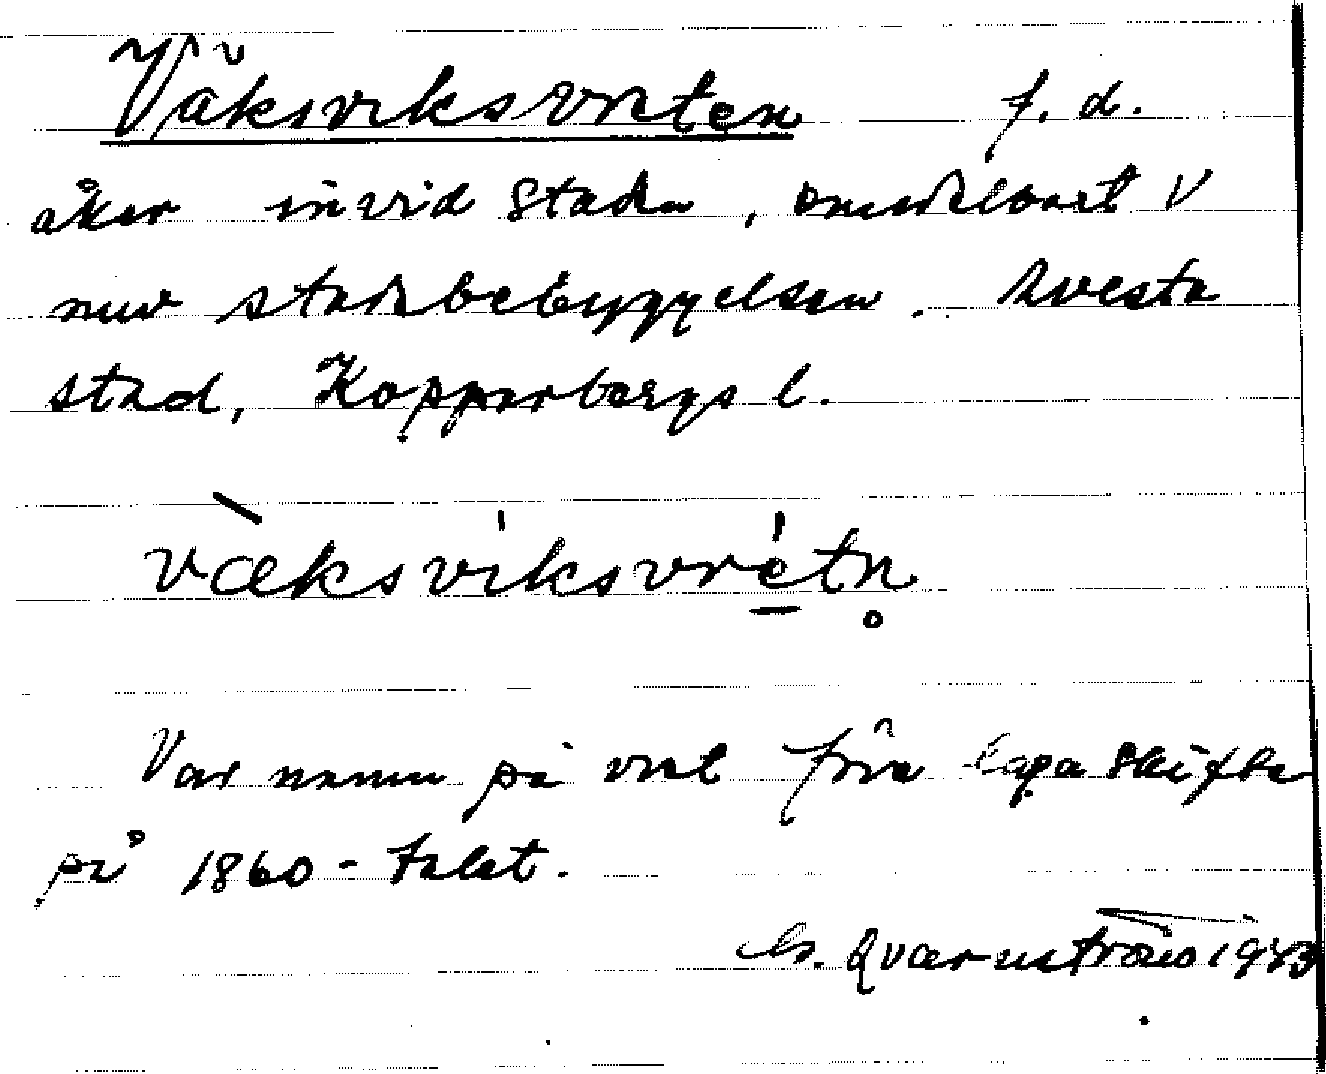 Väksviksvreten f. d.
åker invid staden, omedelbart V
nuv stadsbebyggelsen. Avesta
stad, Kopparbergs l.
vӕ̀ksvi̍ksvre̍tn̥
Var namn på vret före laga skifte
på 1860-talet.
G. Qvarnström 1943